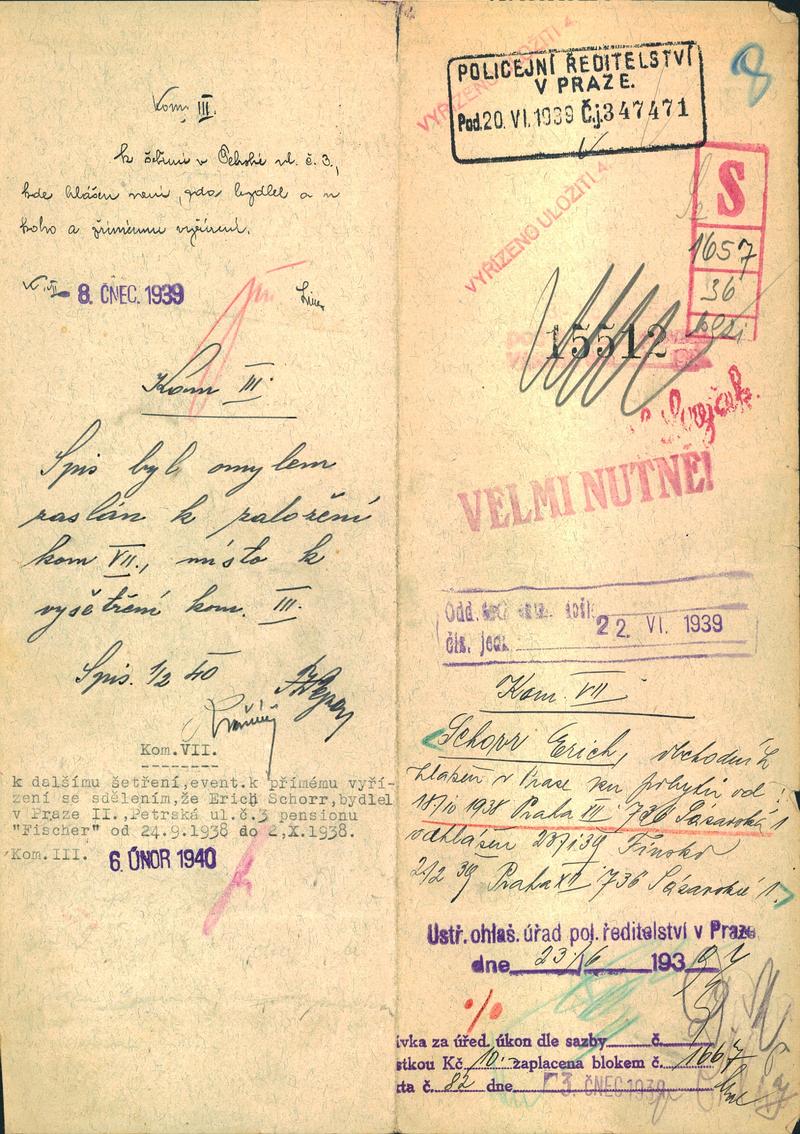 Kom. III.
k šetření v Petrské ul. č. 3,
kde hlášen není, zda bydlel a u
koho a přímému vyřízení.
K. VII
- 8. ČNEC. 1939
Kom III.
Spis byl omylem
zaslán k založení
kom VII., místo k
vyšetření kom. III.
Spis. 1/2 40
Kom.VII.
k dalšímu šetření,event.k přímému vyří-
zení se sdělením,že Erich Schorr,bydlel
v Praze II.,Petrská ul.č.3 pensionu
"Fischer" od 24.9.1938 do 2.X.1938.
Kom.III.
6. ÚNOR 1940
VYŘÍZENO ULOŽITI 4.
POLICEJNÍ ŘEDITELSTVÍ
V PRAZE.
Pod. 20. VI. 1939 Č.j. 347471
8
VYŘÍZENO ULOŽITI 4.
S
1657
36
15512
VELMI NUTNÉ!
Odd.
22. VI. 1939
čís. jedn.
Kom. VII
Schorr Erich, obchodník
hlášen v Praze ku pobytu od
1938 Praha XII 736 Sázavská 1
odhlášen Finsko
2/2 39 Praha XII 736 Sázavská 1.
Ústř. ohlaš. úřad pol. ředitelství v Praze
dne 23/6 1939
ávka za úřed. úkon dle sazby č.
stkou Kč 10.- zaplacena blokem č. 1667
kta č. 82 dne 3. ČNEC 1939